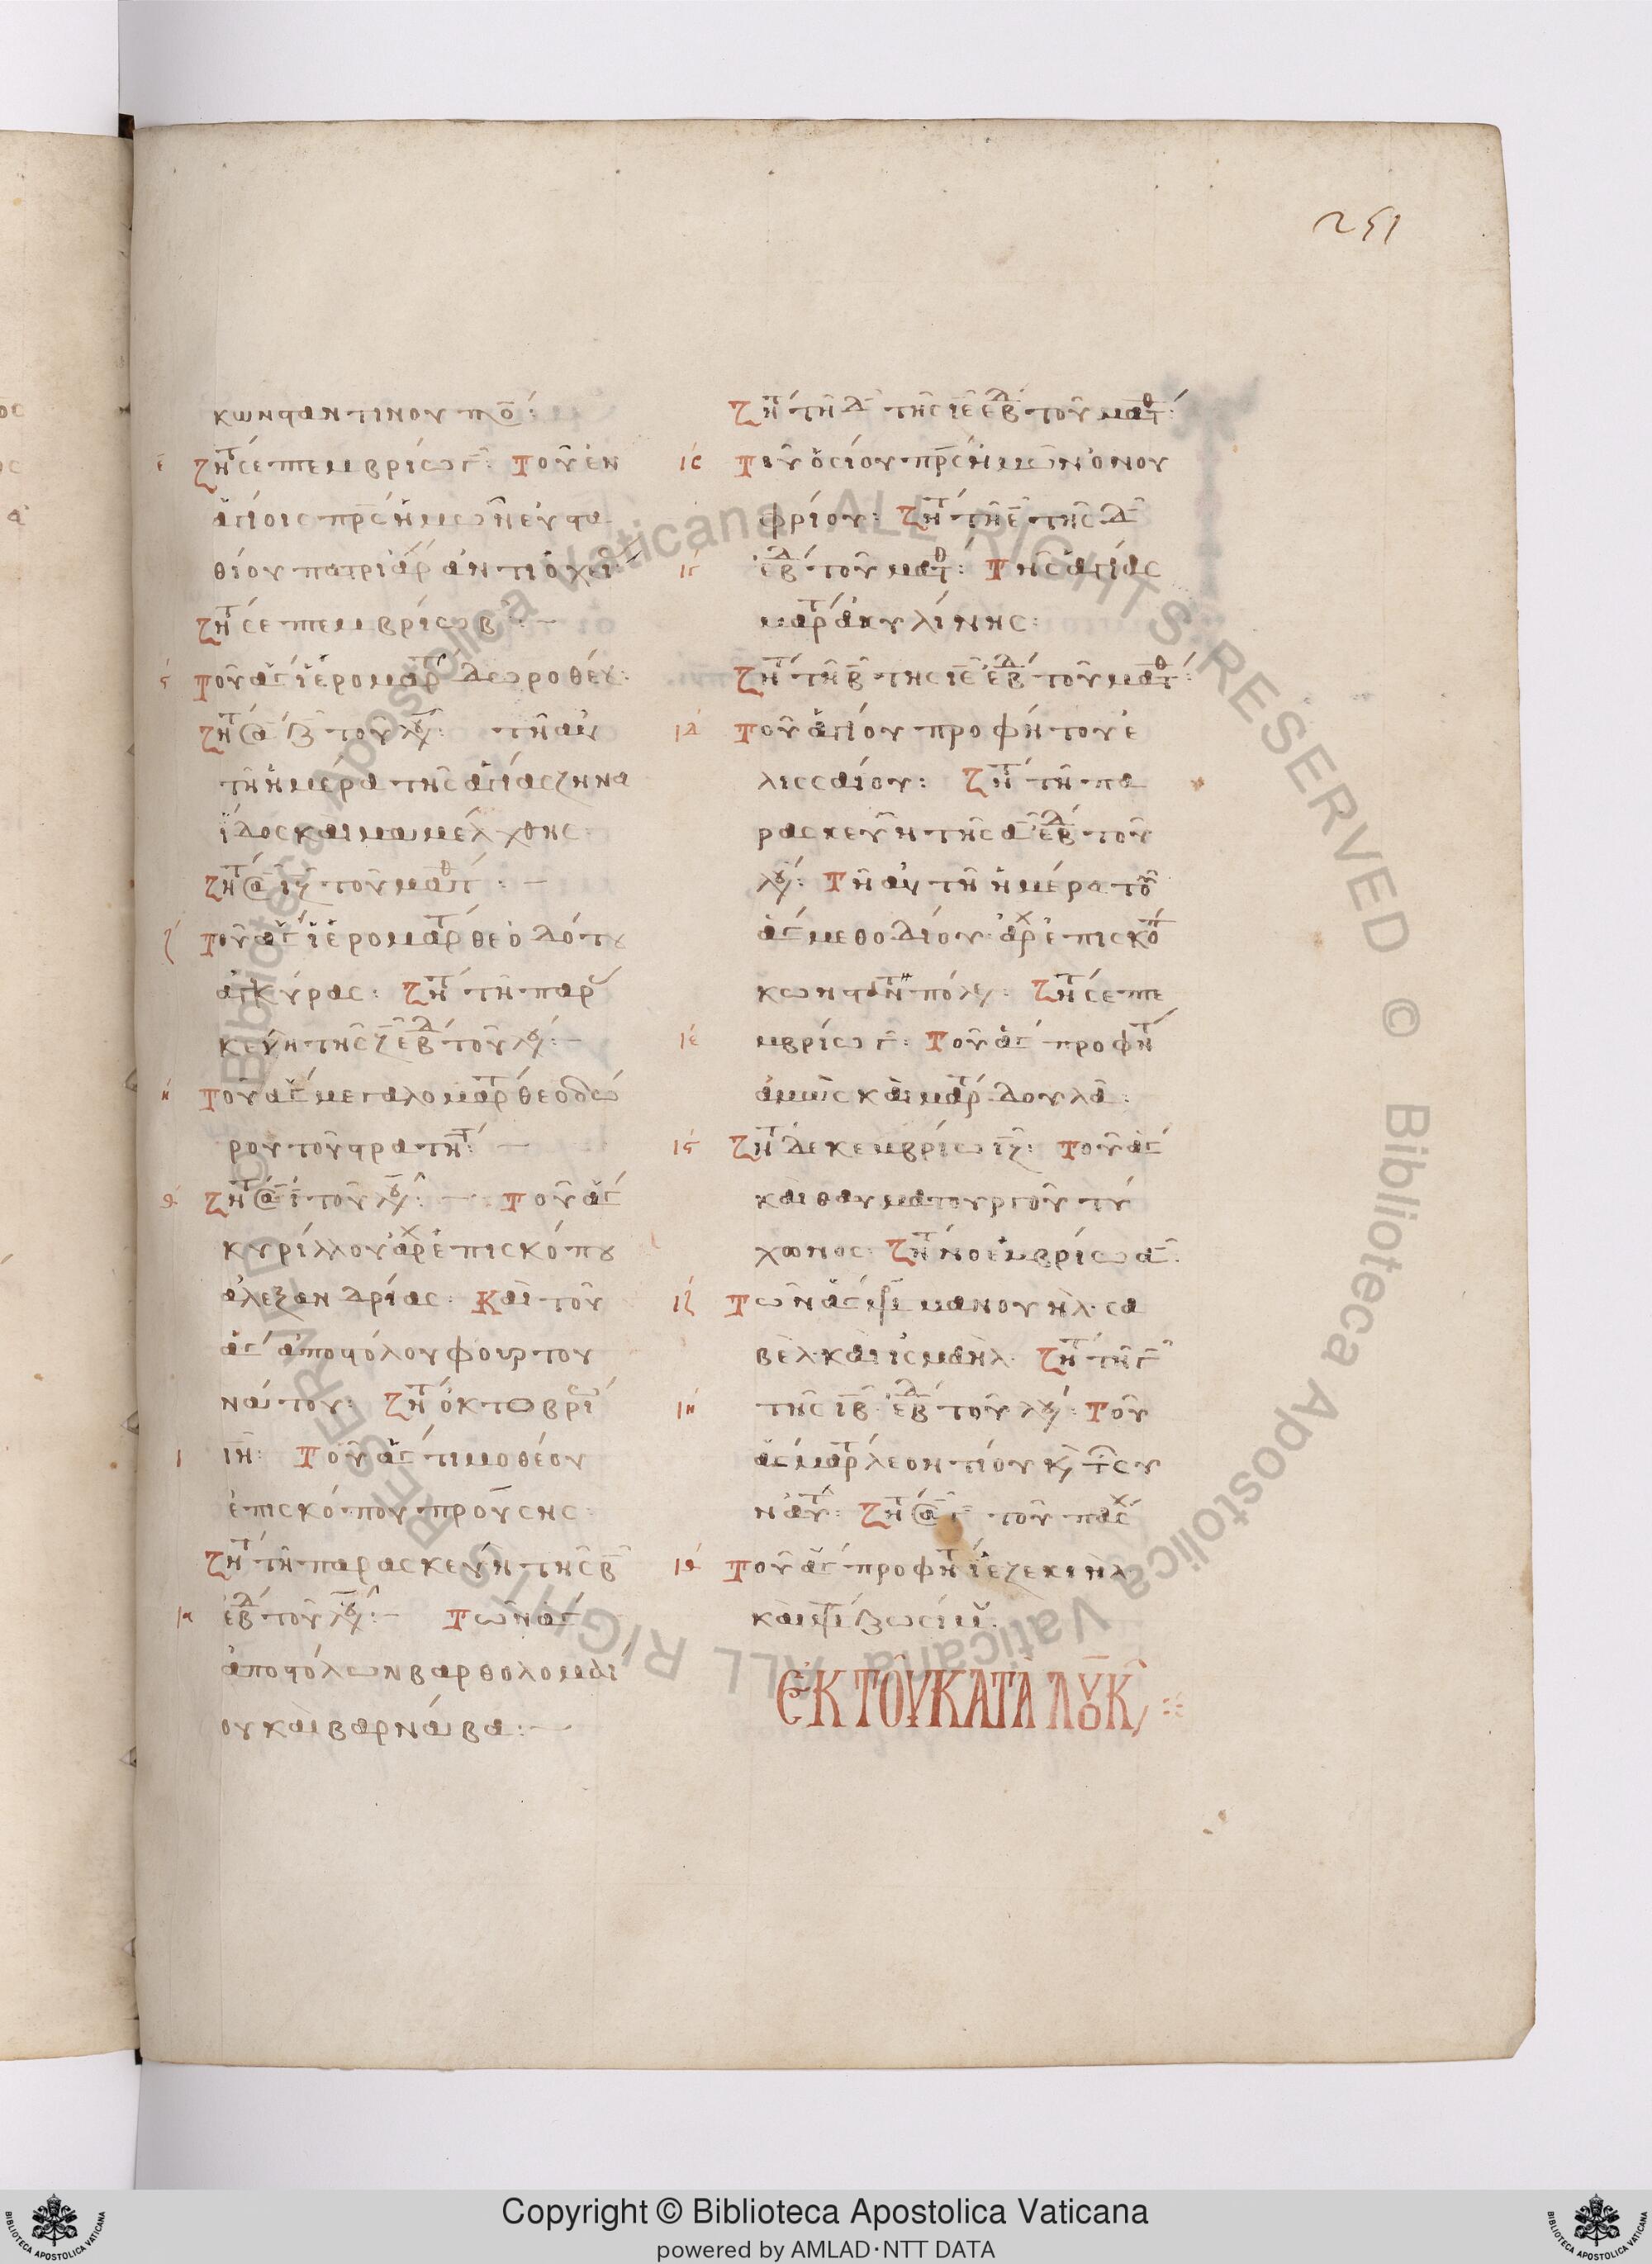 251
κωνσταντινουπο´:
ε̄ ζητ´ σεπτεμβρίω γ̄: Τοῦ ἐν
ἁγίοις πρ̅ς ἡμῶν εὐστα
θίου πατριάρ´ ἀντιοχεί´
ζητ´ σεπτεμβρίω β̄: —
ς´ Τοῦ ἁγ´ ἱερομάρτ´ δωροθέου:
ζητ´ Σα ζ̄ τοῦ λου^κ: τῆ αὐ
τῆ ἡμέρα τῆς ἁγίας ζηνα
ΐδος καὶ μαμέλχθης:
ζητ´ Σα ιζ̄ τοῦ ματθ´: —
ζ´ Τοῦ ἁγ´ ἱερομάρτ´ θεοδότου
ἀγκύρας: ζητ´ τῆ παρα
κευῆ τῆς ζ̄ ἑβδ´ τοῦ λου^κ: —
η´ Τοῦ ἁγ´ μεγαλομάρτ´ θεοδώ
ρου τοῦ στρατητ´: —
θ´ ζητ´ Σα ῑ τοῦ λου^κ: — Τοῦ ἁγ´
κυρίλλου ἀρχ ἐπισκόπου
ἀλεξανδρίας: Καὶ τοῦ
ἁγ´ ἀποστόλου φουρτου
νάτου: ζητ´ ὀκτωβρί´
ι ιη̄: Τοῦ ἁγ´ τιμοθέου
ἐπισκόπου προύσης:
ζητ´ τῆ παρασκευῆ τῆς β̄
ια ἑβδ´ τοῦ λου^κ: — Τῶν ἁγ´
ἀποστόλων βαρθολομαί
ου καὶ βαρνάβα: —
ζητ´ τῆ δ̄ τῆς ιε̄ ἑβδ´ τοῦ ματθ´:
ιβ Τοῦ ὁσίου πρ̅ς ἡμῶν ὀνου
φρίου: ζητ´ τῆ ε̄ τῆς δ̄
ιγ ἑβδ´ τοῦ ματθ´: Τῆς ἁγίας
μάρτ´ ἀκυλίνης:
ζητ´ τῆ β̄ τῆς ιε̄ ἑβδ´ τοῦ ματθ´:
ιδ Τοῦ ἁγίου προφήτου ἐ
λισσαίου: ζητ´ τῆ πα
ρασκευῆ τῆς ᾱ ἑβδ´ τοῦ
λου^κ: Τῆ αὐτῆ ἡμέρα τοῦ
ἁγ´ μεθοδίου ἀρχ ἐπισκόπ
κωνσταντην πόλ: ζητ´ σεπτε
ιε μβρίω γ̄: Τοῦ ἁγ´ προφήτ´
ἀμὼς καὶ μάρτ´ δουλᾶ:
ις ζητ´ δεκεμβρίω ιζ̄: Τοῦ ἁγ´
καὶ θαυματουργοῦ τύ
χωνος: ζητ´ νοεμβρίω ᾱ:
ιζ Τῶν ἁγ´ μανουὴλ· σα
βὲλ· καὶ ἰσμαὴλ· ζητ´ τῆ γ̄
ιη τῆς ιβ̄ ἑβδ´ τοῦ λου^κ: Τοῦ
ἁγ´ μάρτ´ λεοντίου κ, τ̅ συ
ναυτ: ζητ´ Σα γ̄ τοῦ πάσχ
ιθ Τοῦ ἁγ´ προφήτ´ ἰεζεκιὴλ
καὶ ζωσίμ:
ἘΚ ΤΟΥ͂ ΚΑΤᾺ ΛΟΥΚ,
Copyright © Biblioteca Apostolica Vaticana
powered by AMLAD·NTT DATA
© Biblioteca Apostolica Vaticana ALL RIGHTS RESERVED © Biblioteca Apostolica Vaticana ALL RIGHTS RESERVED
BIBLIOTECA APOSTOLICA VATICANA
BIBLIOTECA APOSTOLICA VATICANA